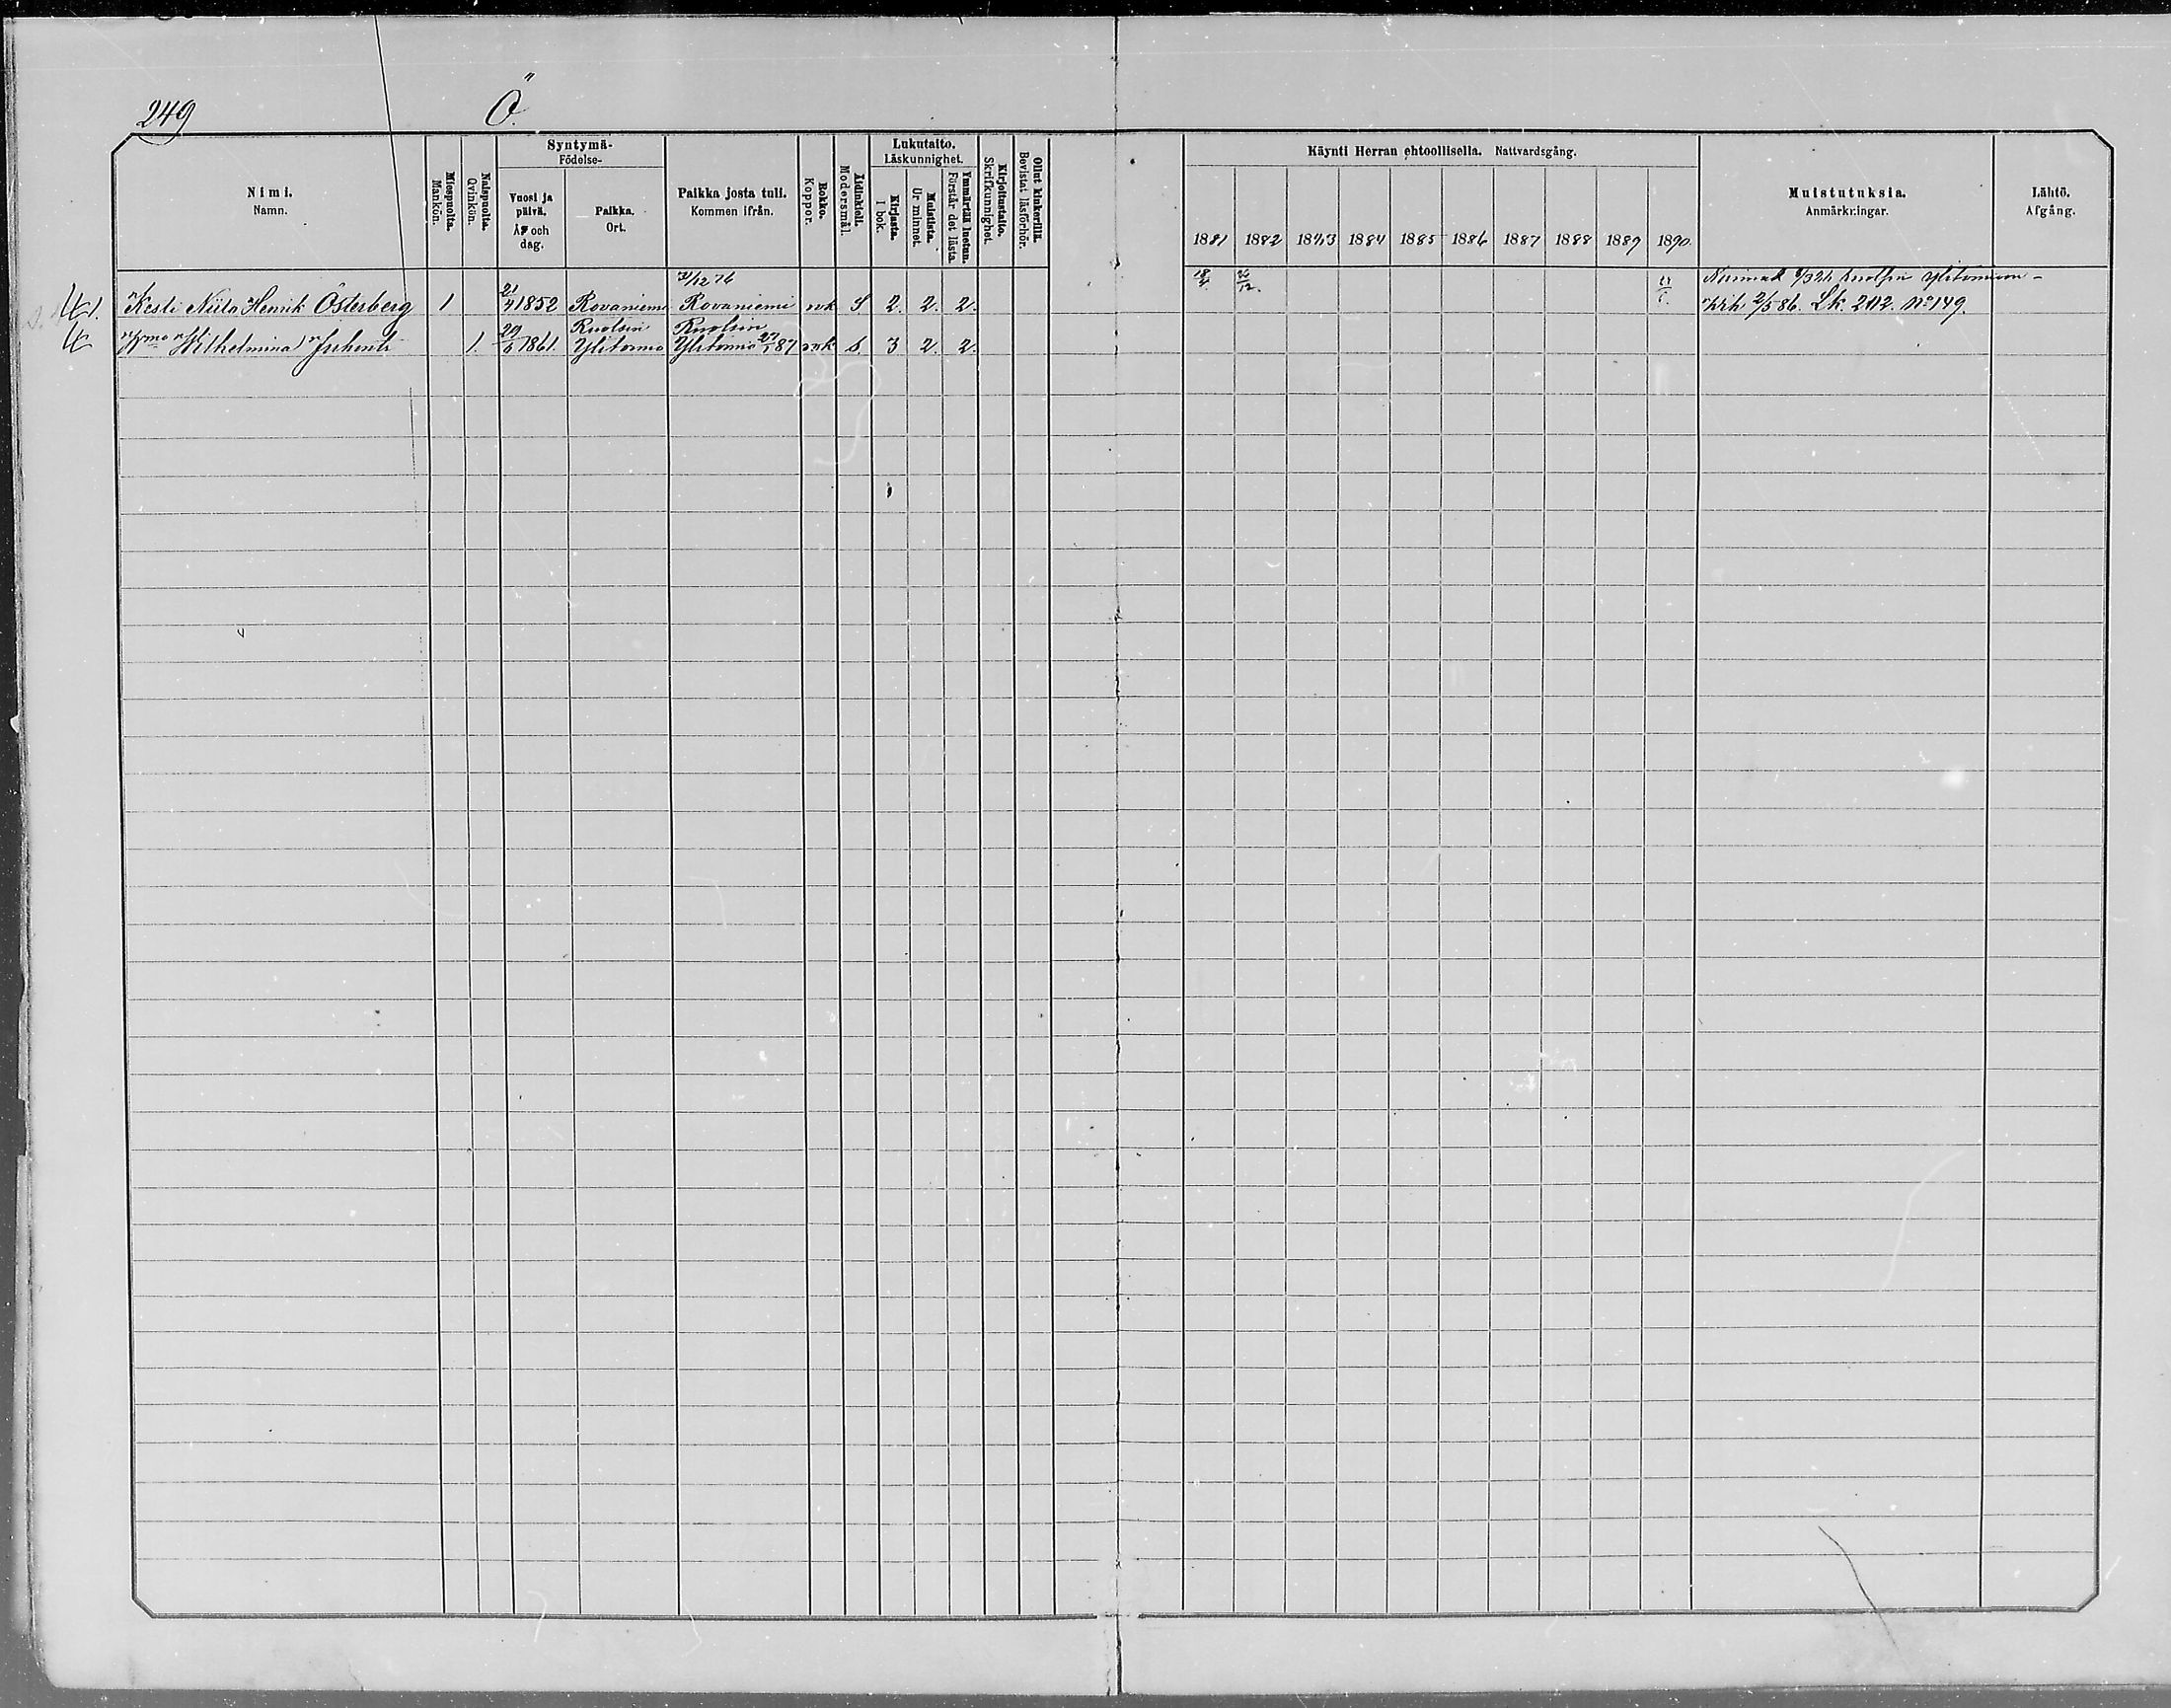 249
Ö.
Nimi.
Namn.
Miespuolta.
Mankön.
Naispuolta.
Qvinkön.
Syntymä-
Födelse-
Vuosi ja
päivä.
År och
dag.
Paikka.
Ort.
Paikka josta tuli.
Kommen ifrån.
Rokko.
Koppor.
Äidinkieli.
Modersmål.
Lukutaito.
Läskunnighet.
Kirjasta.
I bok.
Muistista.
Ur minnet.
Ymmärtää luetun.
Förstår det lästa.
Kirjoitustaito.
Skrifkunnighet.
Ollut kinkerillä.
Bevistat läsförhör.
Käynti Herran ehtoollisella. Nattvardsgång.
1881 1882 1883 1884 1885 1886 1887 1888 1889 1890
Muistutuksia.
Anmärkningar.
Lähtö.
Afgång.
31/12 76
Kesti Niila Henrik Österberg 1 21/4 1852 Rovaniemi Rovaniemi rok S 2. 2. 2. 18/4
Ylitornion
Vih. 2/5 86. Lk. 212. No 149.
Ruolsin Ruolsin
Wilhelmina 1. 29/6 1861. Ylitornio Ylitornio 87 rok S. 3 2. 2.